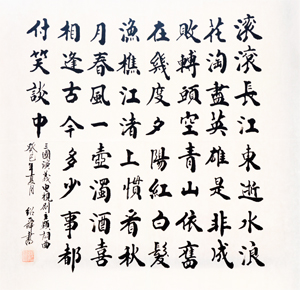 滾滾長江東逝水浪
花淘盡英雄是非成
敗轉頭空青山依舊
在幾度夕陽紅白髮
漁樵江渚上慣看秋
月春風一壺濁酒喜
相逢古今多少事都
付笑談中
三國演義電視劇主題詞曲
癸巳年五月 書